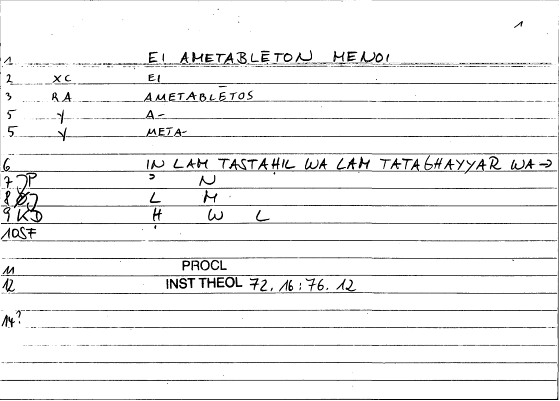 1
1 EI AMETABLĒTON MENOI
2 XC EI
3 RA AMETABLĒTOS
5 Y A-
5 Y META-
6 IN LAM TASTAḤIL WA LAM TATAGHAYYAR WA→
7 JP ʾ N
8 J L M
9 KD Ḥ W L
10 SF
11 PROCL
12 INST THEOL 72.16:76.12
14?